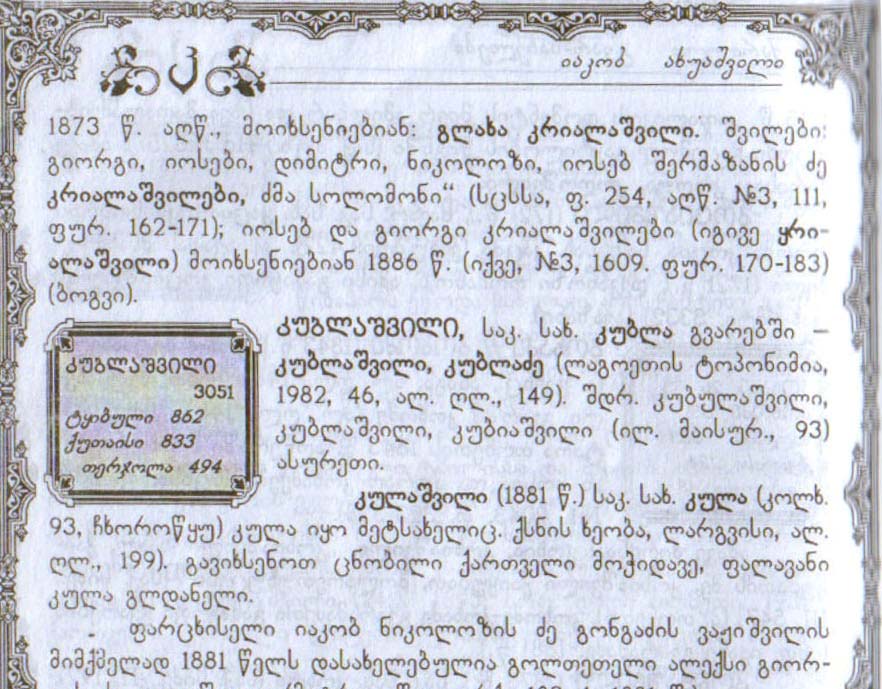 კ
იაკობ ახუაშვილი
1873 წ. აღწ., მოიხსენიებიან: გლახა კრიალაშვილი. შვილები:
გიორგი, იოსები, დიმიტრი, ნიკოლოზი, იოსებ შერმაზანის ძე
კრიალაშვილები, ძმა სოლომონი“ (სცსსა, ფ. 254, აღწ. №3, 111,
ფურ. 162-171); იოსებ და გიორგი კრიალაშვილები (იგივე ყრი-
ალაშვილი) მოიხსენიებიან 1886 წ. (იქვე, №3, 1609. ფურ. 170-183)
(ბოგვი).
კუბლაშვილი
3051
ტყიბული 862
ქუთაისი 833
თერჯოლა 494
კუბლაშვილი, საკ. სახ. კუბლა გვარებში –
კუბლაშვილი, კუბლაძე (ლაგოეთის ტოპონიმია,
1982, 46, ალ. ღლ., 149). შდრ. კუბულაშვილი,
კუბლაშვილი, კუბიაშვილი (ილ. მაისურ., 93)
ასურეთი.
კულაშვილი (1881 წ.) საკ. სახ. კულა (კოლხ.
93, ჩხოროწყუ) კულა იყო მეტსახელიც. ქსნის ხეობა, ლარგვისი, ალ.
ღლ., 199). გავიხსენოთ ცნობილი ქართველი მოჭიდავე, ფალავანი
კულა გლდანელი.
ფარცხისელი იაკობ ნიკოლოზის ძე გონგაძის ვაჟიშვილის
მიმქმელად 1881 წელს დასახელებულია გოლთეთელი ალექსი გიორ-